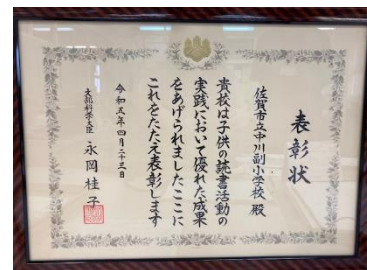 表彰状
佐賀市立中川副小学校 殿
貴校は子供の読書活動の
実践において優れた成果
をあげられましたここに
これをたたえ表彰します
令和五年四月二十三日
文部科学大臣 永岡桂子